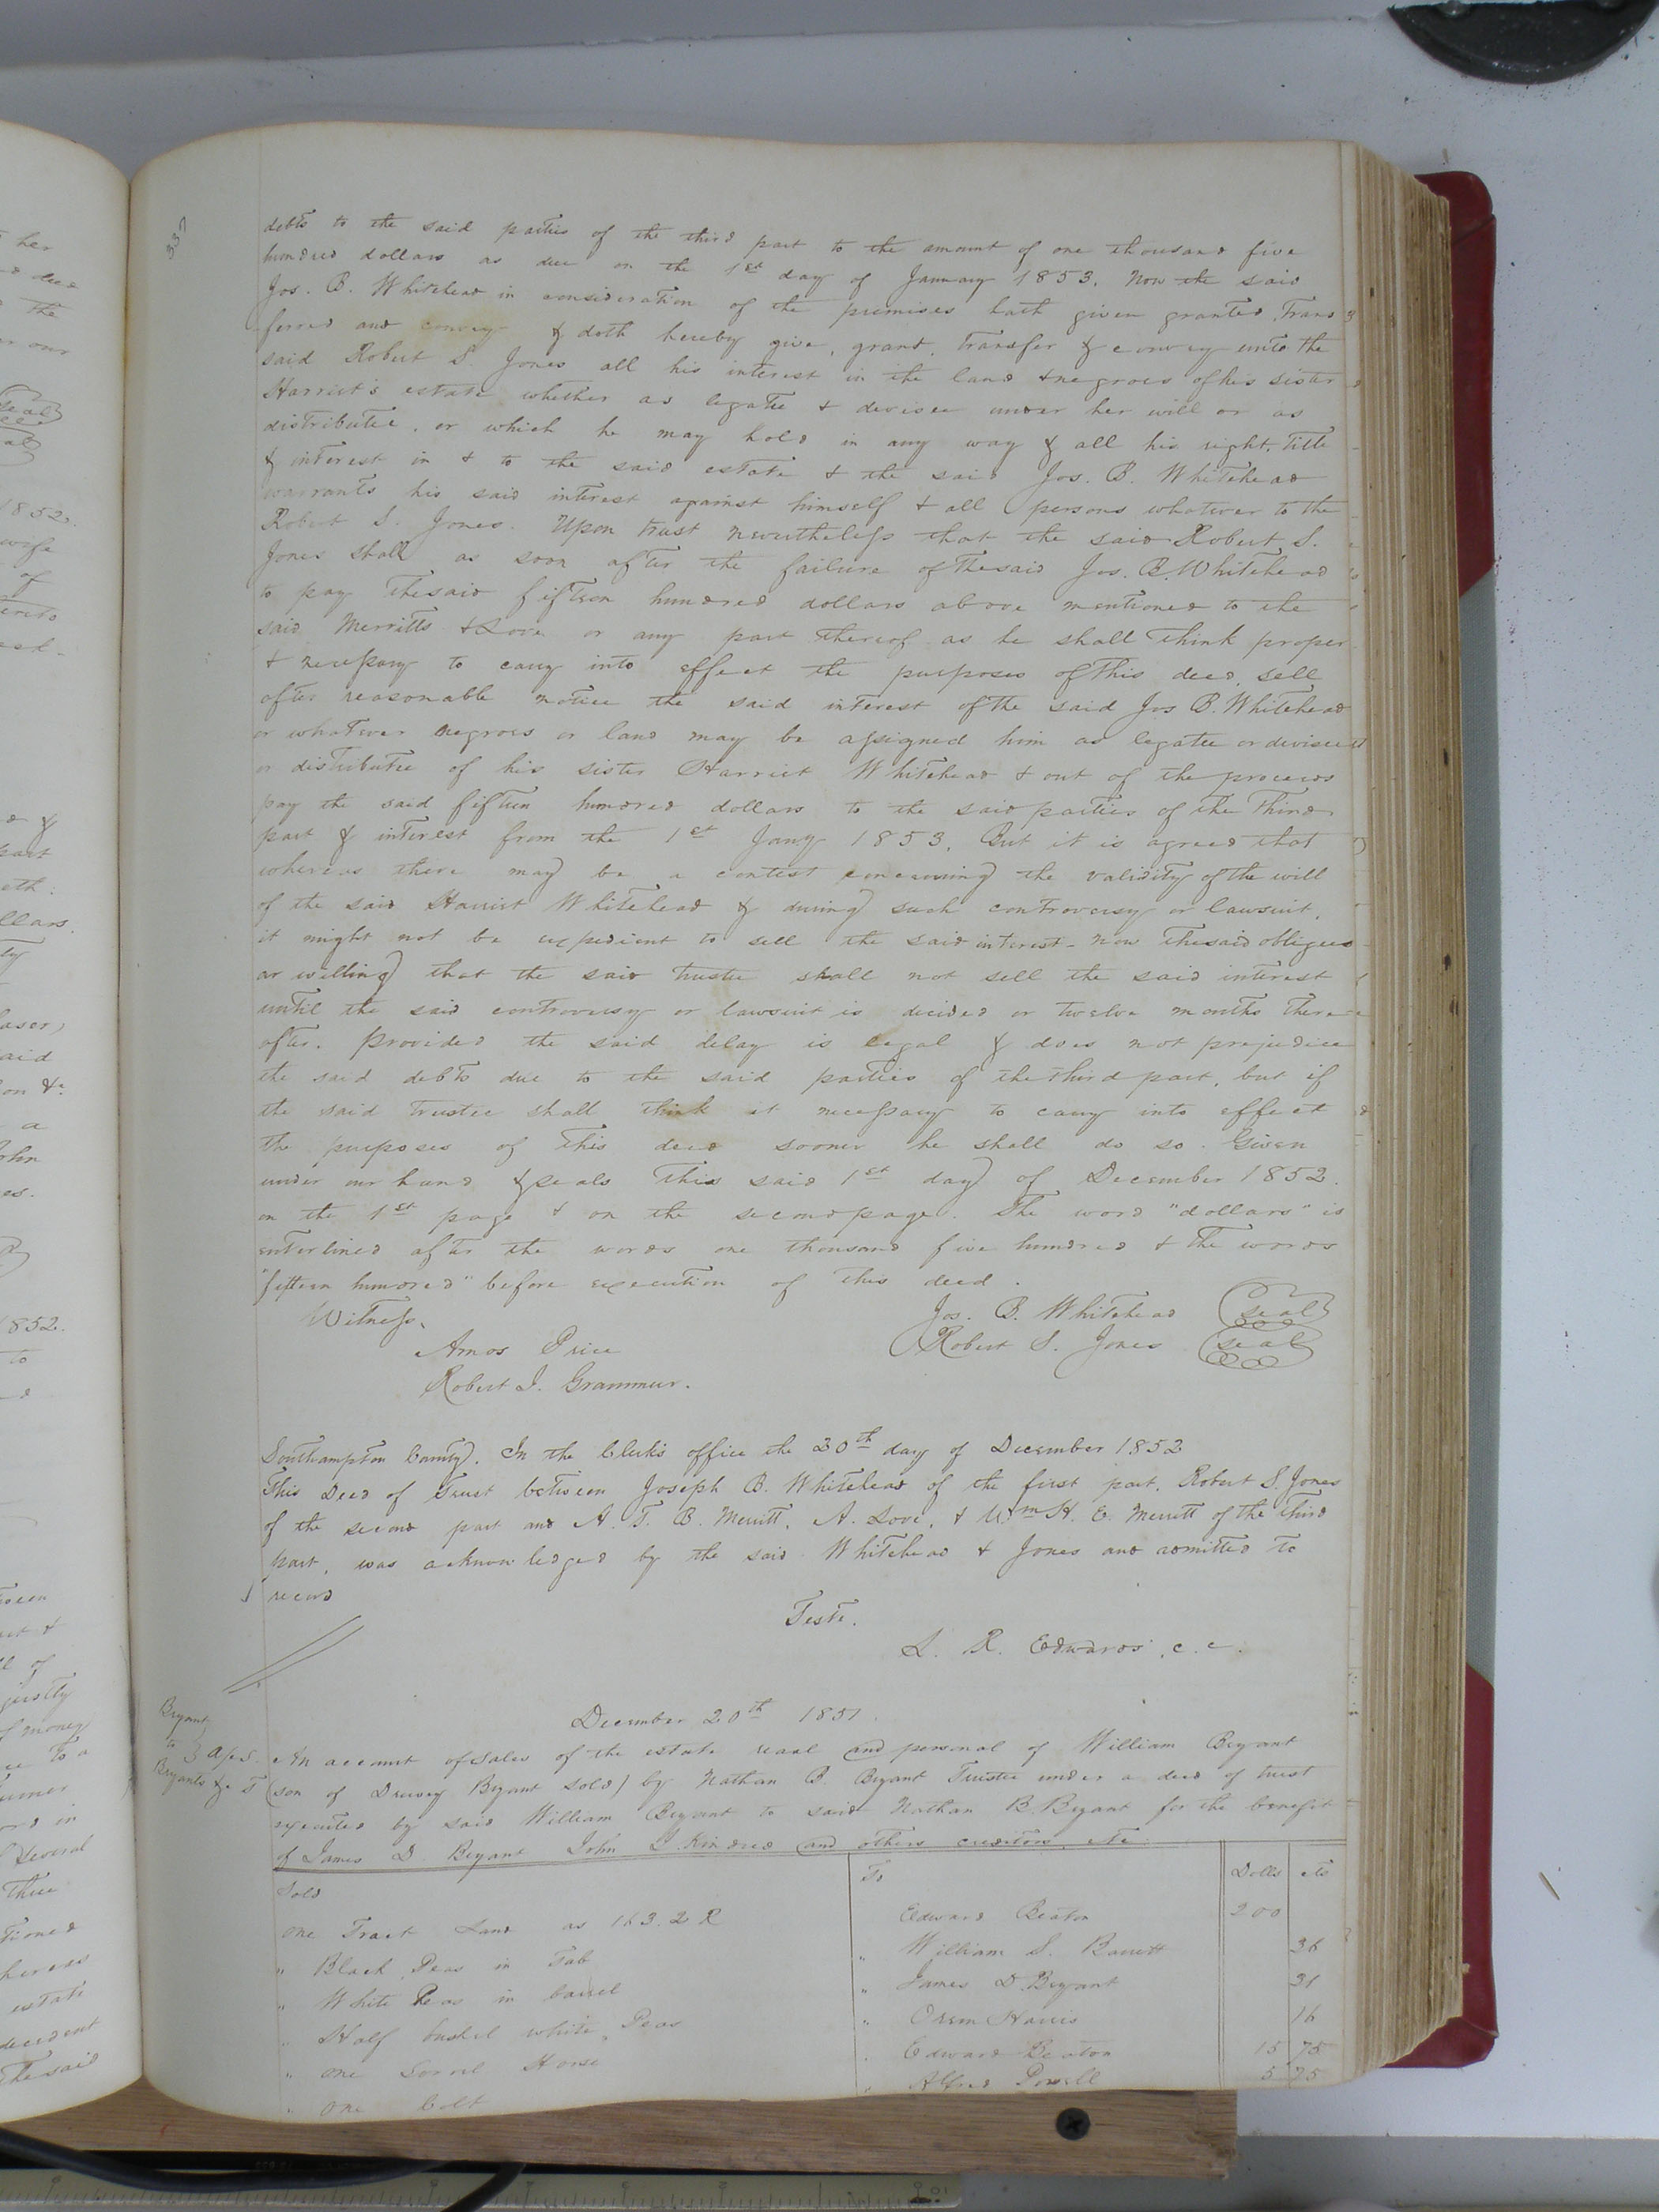 337
debts to the said parties of the third part to the amount of one thousand five
hundred dollars as due on the 1st day of January 1853. Now the said
Jos. B. Whitehead in consideration of the premises hath given granted, Trans
ferred and convey & doth hereby give, grant, transfer & convey unto the
said Robert S. Jones all his interest in the land & negroes of his sister
Harriet's estate whether as legatee & devisee under her will or as
distributee, or which he may hold in any way & all his right, title
& interest in & to the said estate & the said Jos. B. Whitehead
warrants his said interest against himself & all persons whatever to the
Robert S. Jones. Upon trust nevertheless that the said Robert S.
Jones shall as soon after the failure of the said Jos. B. Whitehead
to pay the said fifteen hundred dollars above mentioned to the
said Merritts & Love or any part thereof as he shall think proper
& necessary to carry into effect the purposes of this deed, sell
after reasonable notice the said interest of the said Jos B. Whitehead
or whatever negroes or land may be assigned him as legatee or devisee
or distributee of his sister Harriet Whitehead & out of the proceeds
pay the said fifteen hundred dollars to the said parties of the Third
part & interest from the 1st Jany 1853. But it is agreed that
whereas there may be a contest concerning the validity of the will
of the said Harriet Whitehead & during such controversy or lawsuit,
it might not be expedient to sell the said interest - Now the said obligees
ar willing that the said trustee shall not sell the said interest
until the said controversy or lawsuit is decided or twelve months there
after. Provided the said delay is legal & does not prejudice
the said debts due to the said parties of the third part, but if
the said trustee shall think it necessary to carry into effect
the purposes of this deed sooner he shall do so. Given
under our hand & seals this said 1st day of December 1852.
on the 1st page & on the second page. The word "dollars" is
interlined after the words one thousand five hundred & the words
"fifteen hundred" before execution of this deed.
Witness, Jos. B. Whitehead seal
Amos Price Robert S. Jones seal
Robert J. Grammer.
Southampton County. In the Clerk's office the 20th day of December 1852
This Deed of Trust between Joseph B. Whitehead of the first part, Robert S. Jones
of the second part and A. T. B. Merritt, A. Love, & Wm H. E. Merritt of the third
part, was acknowledged by the said Whitehead & Jones and admitted to
record
Teste.
L. R. Edwards, c. c.
December 20th 1851
Bryant
to
Bryants &c
An account of Sales of the estate real and personal of William Bryant
(son of Drewry Bryant sold) by Nathan B. Bryant Trustee under a deed of trust
executed by said William Bryant to said Nathan B. Bryant for the benefit
of James D. Bryant John L. Kindred and others creditors, etc
Sold To Dolls cts
One Tract Land as 163.2 R Edward Beaton 200
" Black Peas in Tub " William S. Barrett 36
" White Peas in barrel " James D. Bryant 31
" Half bushel white Peas " Orem Harris 16
" One Sorrel Horse " Edward Beaton 15 75
" One Colt " Alfred Powell 5 25